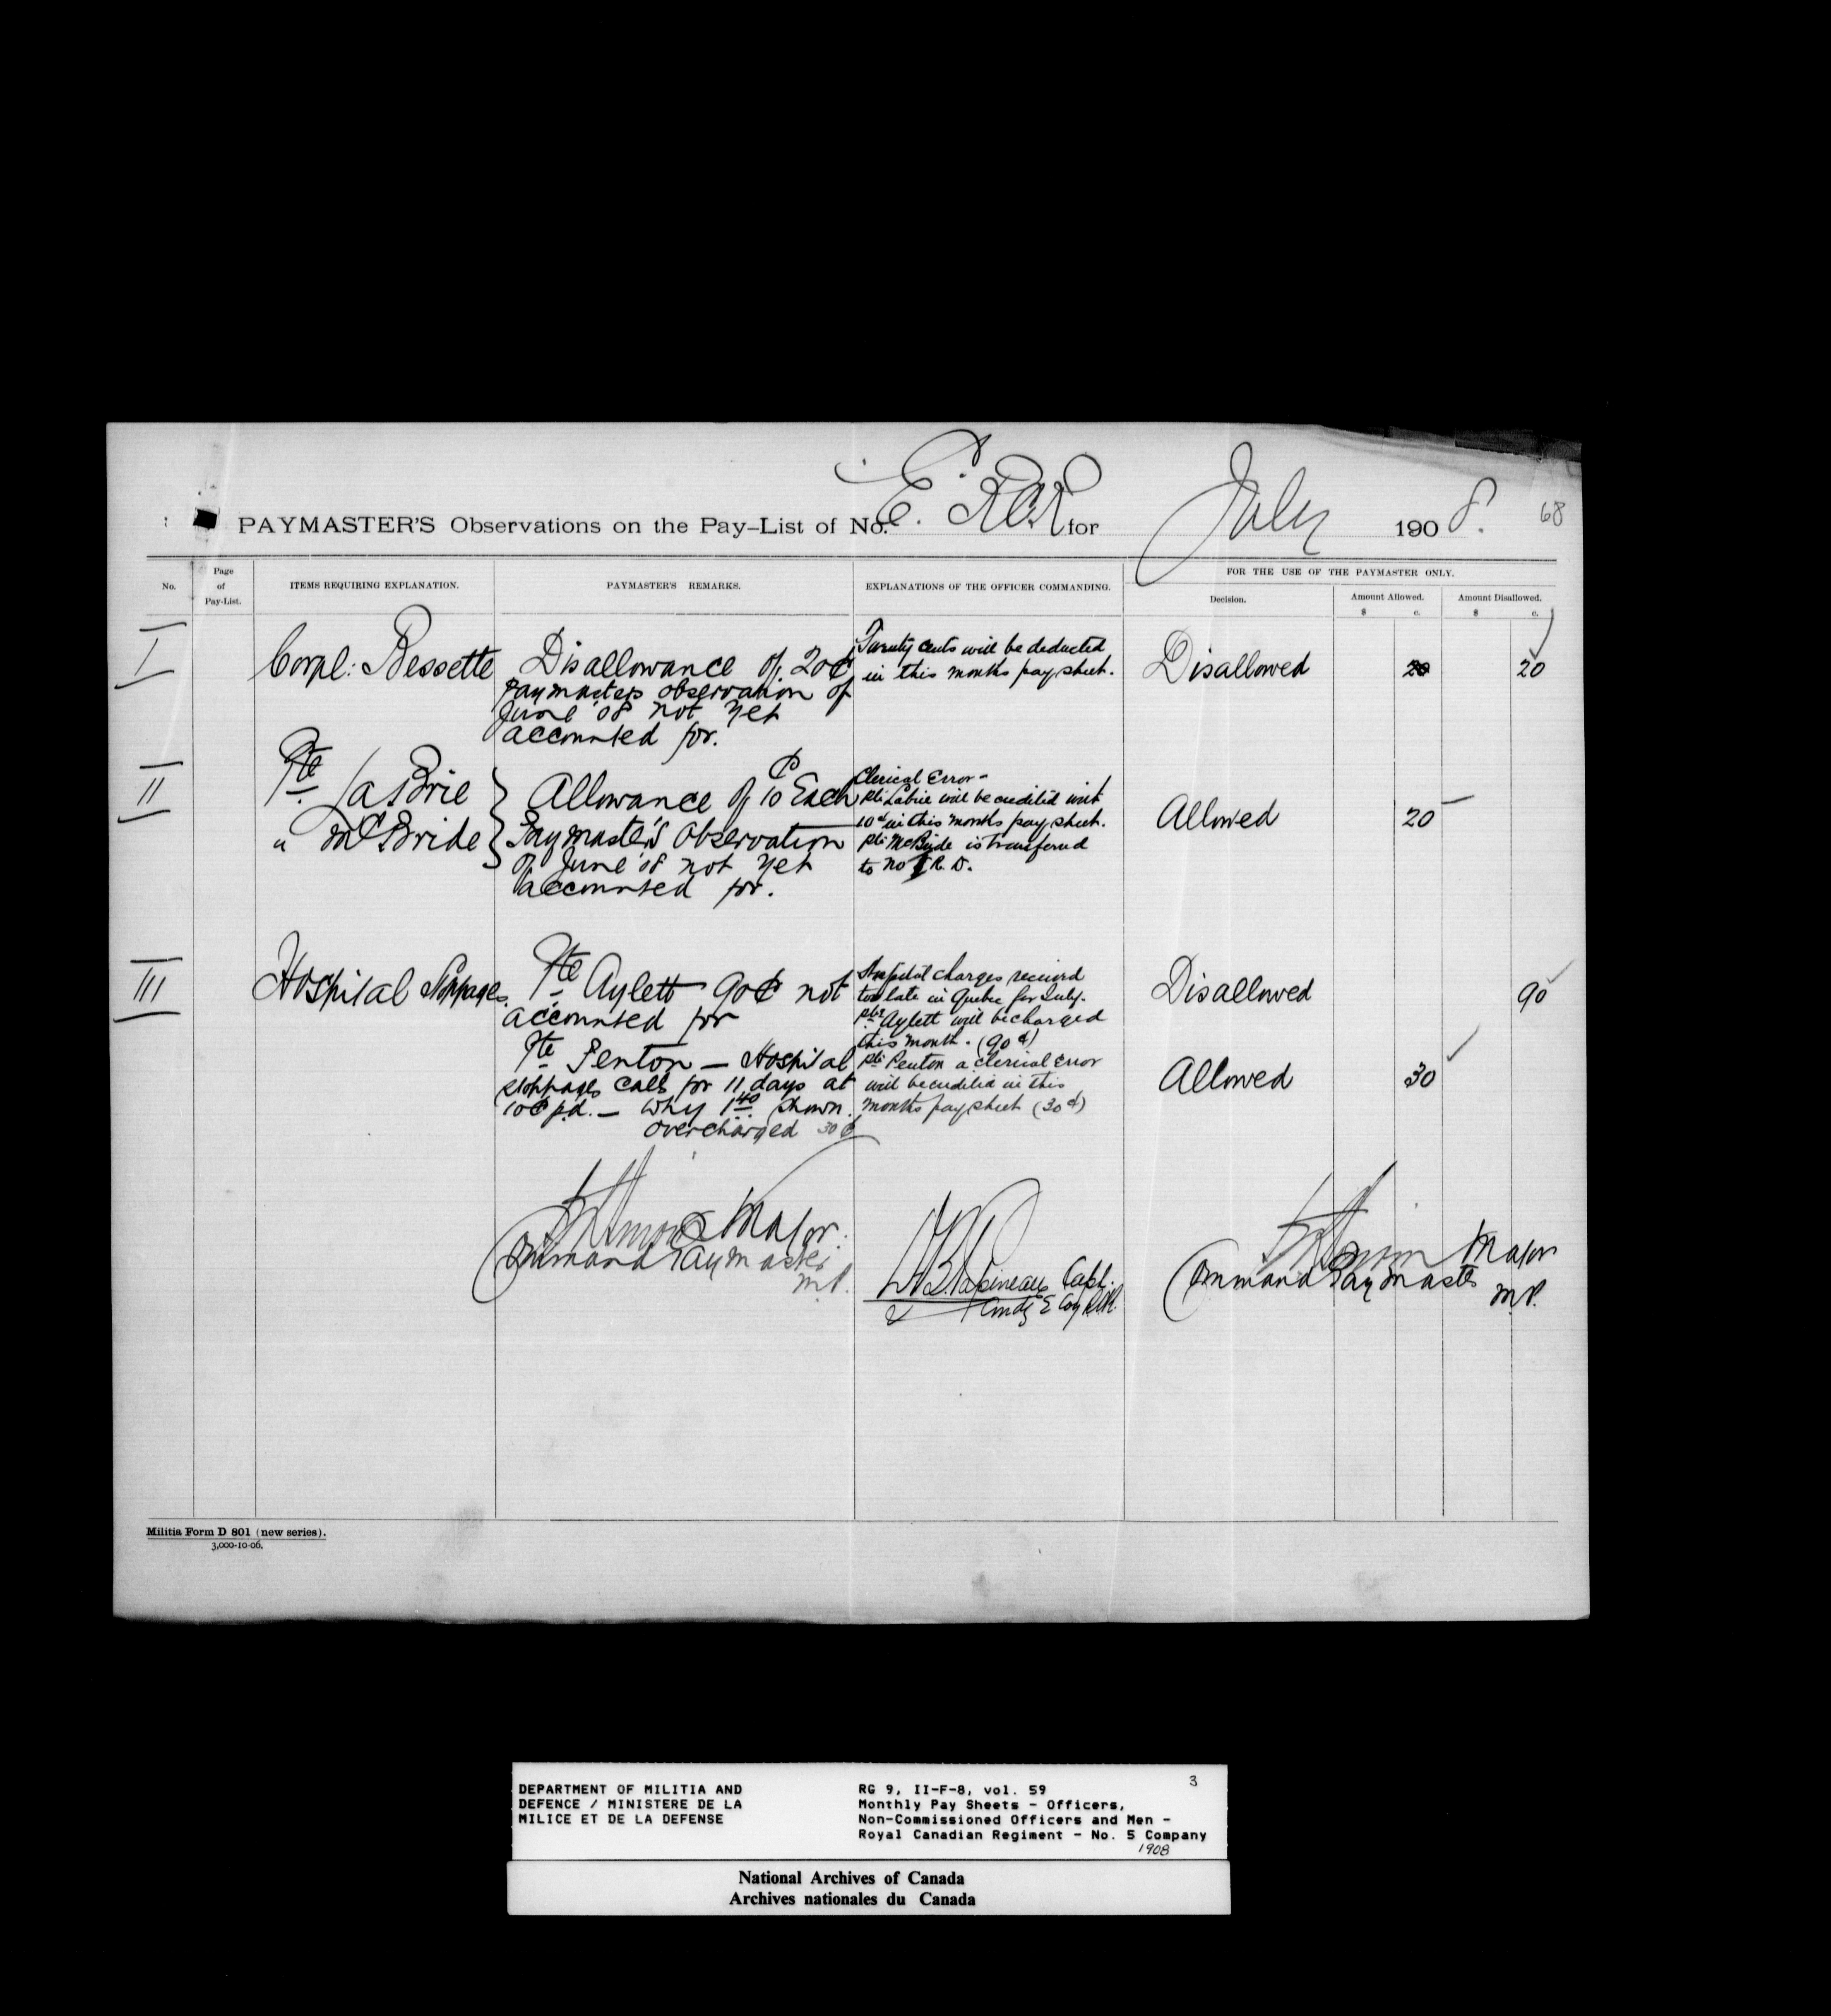 PAYMASTER'S Observations on the Pay-List of No. E. RCR for July 1908.
68
No.
Page of Pay-List.
ITEMS REQUIRING EXPLANATION.
PAYMASTER'S REMARKS.
EXPLANATIONS OF THE OFFICER COMMANDING.
FOR THE USE OF THE PAYMASTER ONLY.
Decision.
Amount Allowed.
$ c.
Amount Disallowed.
$ c.
I
Corpl: Bessette
Disallowance of 20¢
paymasters observation of
June '08 not yet
accounted for.
Twenty cents will be deducted
in this months pay sheet.
Disallowed
20
20
II
Pte. LaBrie
" McBride
Allowance of 10¢ Each
Paymaster's Observation
of June '08 not yet
accounted for.
Clerical Error -
Pte Labrie will be credited with
10¢ in this months pay sheet.
Pte McBride is transferred
to No R. D.
Allowed
20
III
Hospital Stoppages.
Pte Aylett 90¢ not
accounted for
Pte Fenton — Hospital
stoppages call for 11 days at
10¢ p.d. — Why 1.40 shown.
overcharged 30¢
Hospital charges received
too late in Quebec for July.
Pte Aylett will be charged
this month. (90¢)
Pte Fenton a clerical error
will be credited in this
months pay sheet (30¢)
Disallowed
90
Allowed
30
Major.
Command Paymaster
M.P.
Papineau Capt.
Comdg E Coy RCR.
Major
Command Paymaster
M.P.
Militia Form D 801 (new series).
3,000-10-06.
DEPARTMENT OF MILITIA AND
DEFENCE / MINISTERE DE LA
MILICE ET DE LA DEFENSE
RG 9, II-F-8, vol. 59
Monthly Pay Sheets - Officers,
Non-Commissioned Officers and Men -
Royal Canadian Regiment - No. 5 Company
1908
3
National Archives of Canada
Archives nationales du Canada